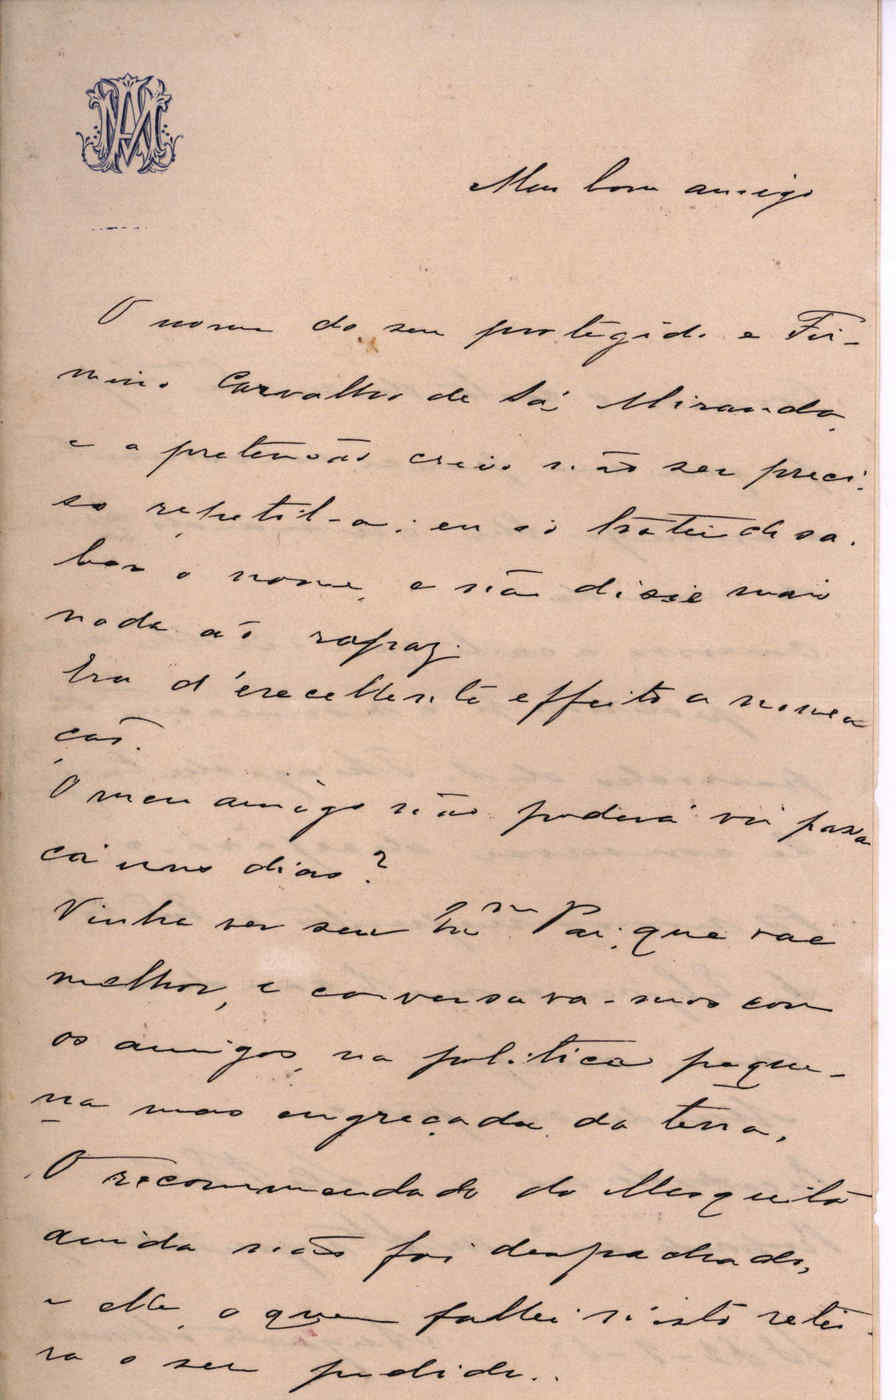 AM
Meu bom amigo
O nome do seu protegido e Fir-
mino Carvalho de Sá Miranda,
e a pretensão creio não ser preci-
so repetil-a; eu só tratei de sa-
ber o nome, e não disse mais
nada ao rapaz.
Era d'excellente effeito a nomea
ção.
O meu amigo não poderá vir passar
cá uns dias?
Vinha ver seu Pai, que vae
melhor, e conversava-mos com
os amigos, na politica peque-
na mas engraçada da terra.
O recommendado do Mesquita
ainda não foi despachado,
e elle, a quem fallei n'isto reti-
ra o seu pedido.